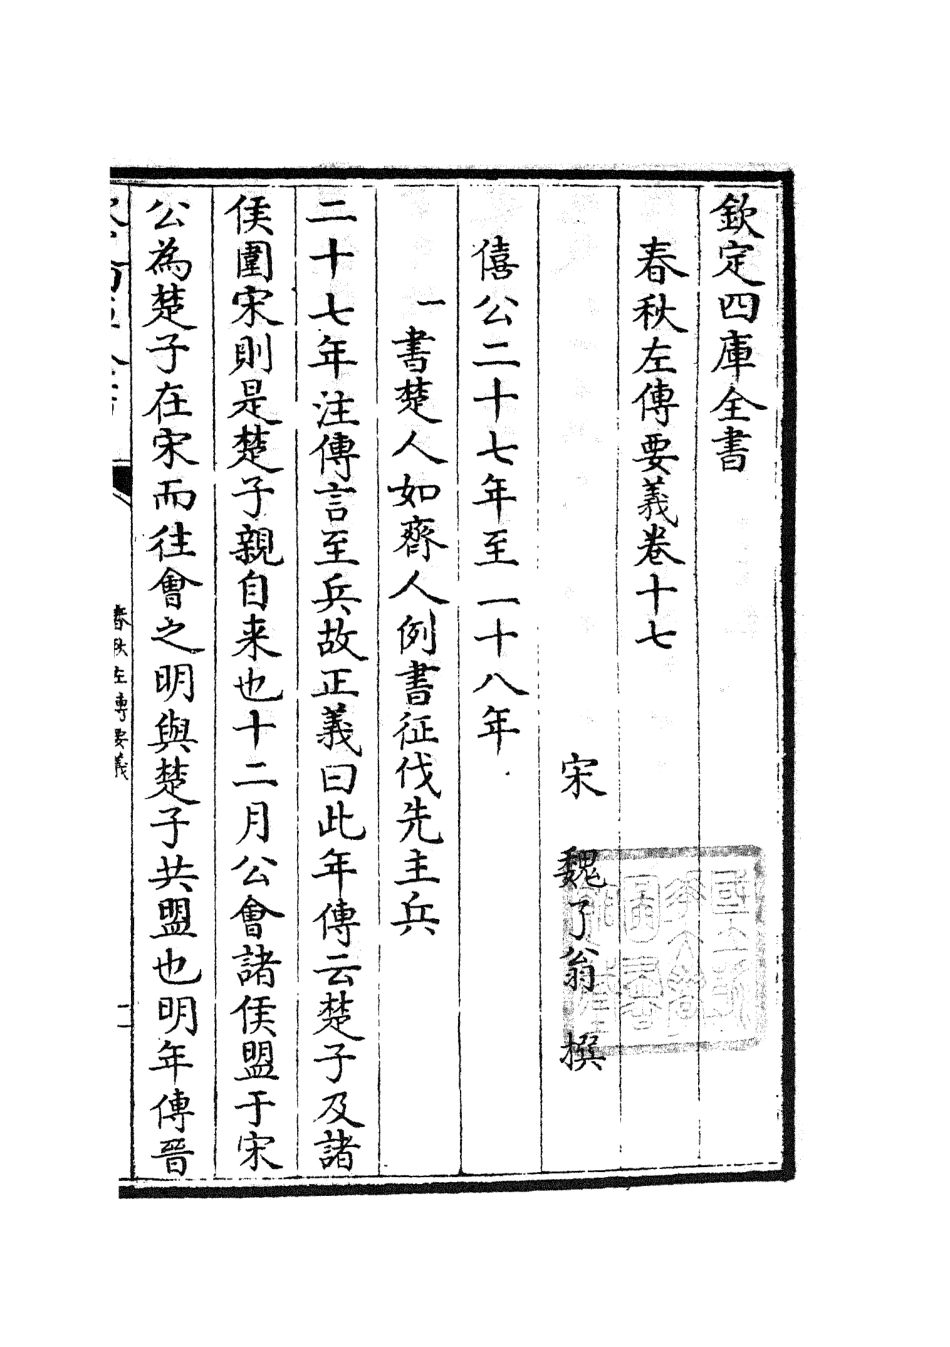 欽定四庫全書
春秋左傳要義卷十七
宋 魏了翁 撰
僖公二十七年至二十八年
一書楚人如齊人例書征伐先主兵
二十七年注傳言至兵故正義曰此年傳云楚子及諸
侯圍宋則是楚子親自来也十二月公會諸侯盟于宋
公為楚子在宋而往會之明與楚子共盟也明年傳晉
春秋左傳要義